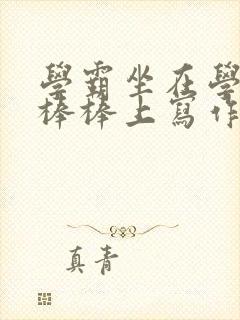 學霸坐在學
棒棒上寫作
真青